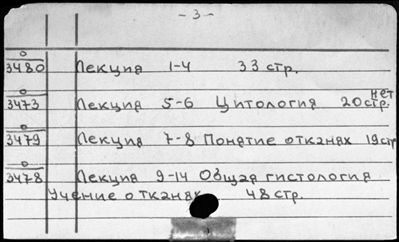 - 3 -
0
3480 Лекция 1-4 33 стр.
0 нет
3473 Лекция 5-6 Цитология 20стр.
0
3479 Лекция 7-8 Понятие отканях 19стр
0
3478 Лекция 9-14 Общая гистология
Учение о тканях 48стр.